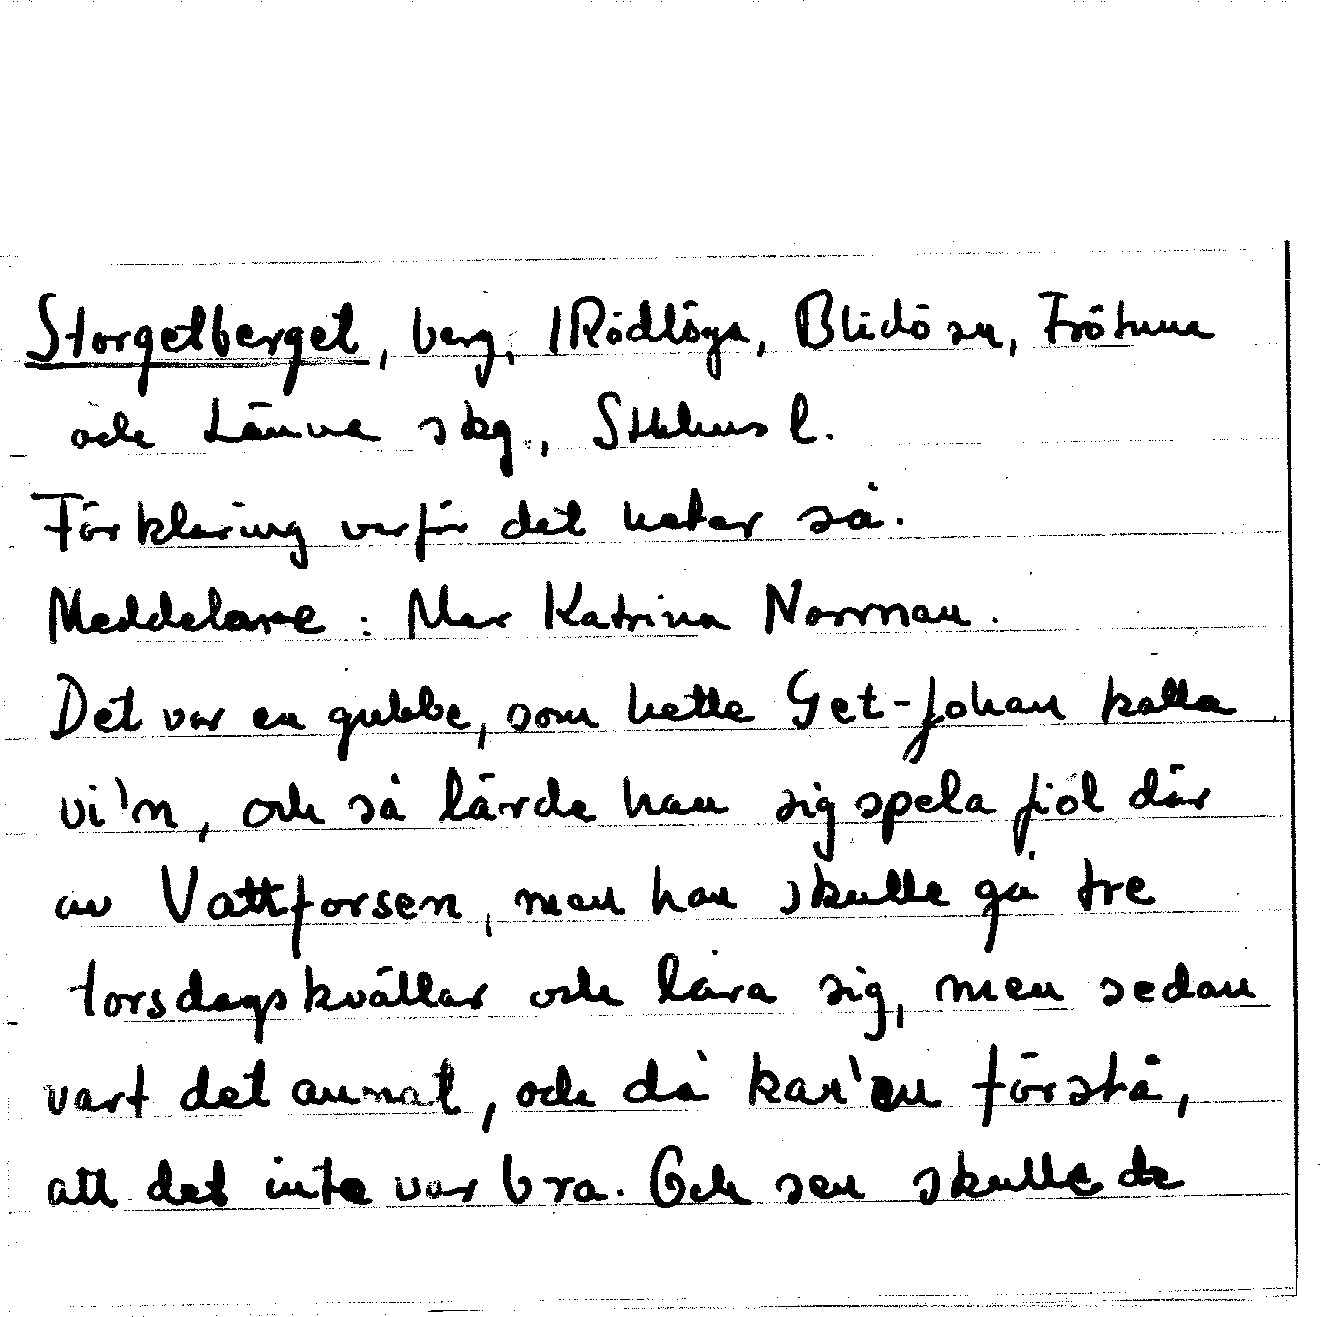 Storgetberget, berg, Rödlöga, Blidö sn, Frötuna
och Länna skg, Sthlms l.
Förklaring varför det heter så.
Meddelare: Mor Katrina Norrman.
Det var en gubbe, som hette Get-Johan kalla
vi'n, och så lärde han sig spela fiol där
av Vattforsen, men han skulle gå tre
torsdagskvällar och lära sig, men sedan
vart det annat, och då kan'en förstå,
att det inte var bra. Och sen skulle de